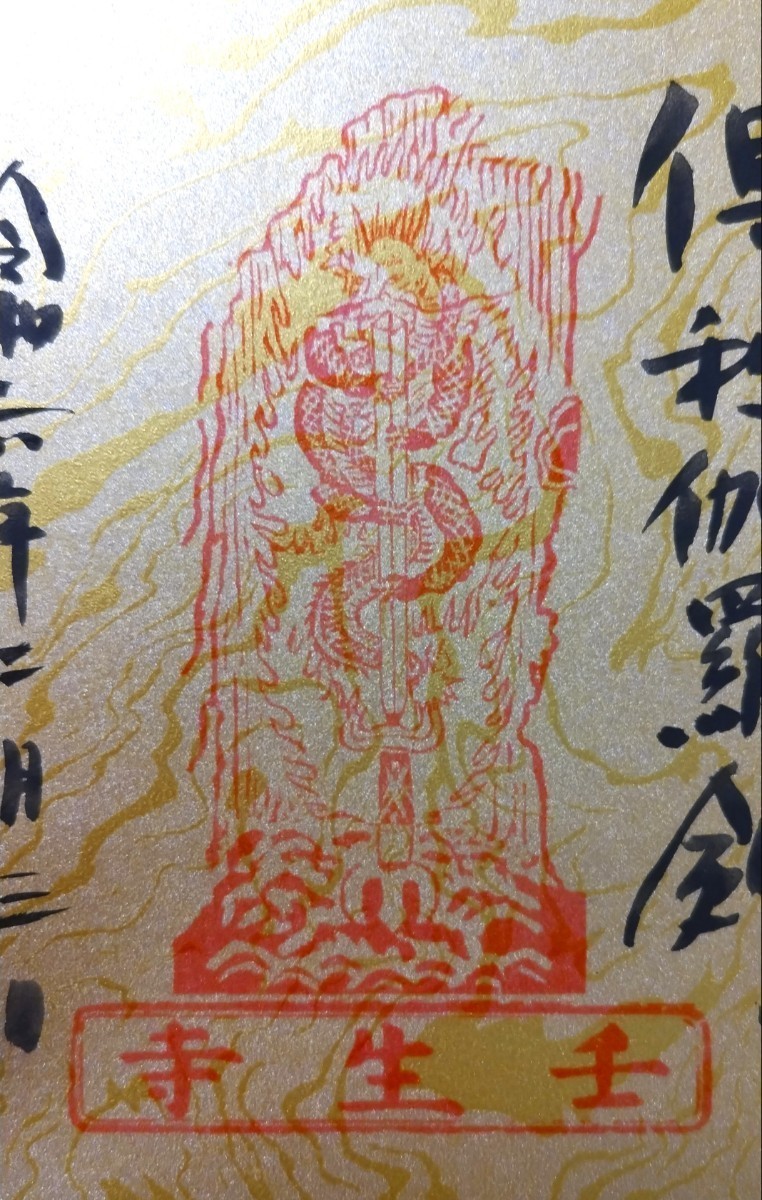 倶利伽羅剣
壬生寺
令和六年二月二日